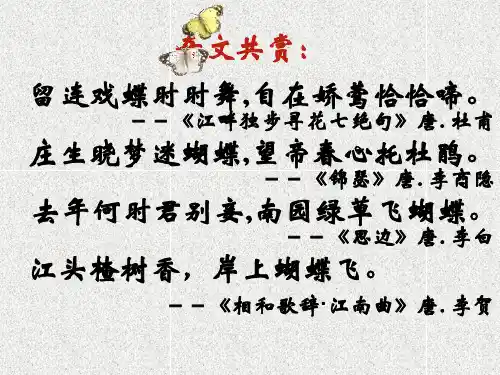 奇文共赏：
留连戏蝶时时舞,自在娇莺恰恰啼。
－－《江畔独步寻花七绝句》唐.杜甫
庄生晓梦迷蝴蝶,望帝春心托杜鹃。
－－《锦瑟》唐.李商隐
去年何时君别妾,南园绿草飞蝴蝶。
－－《思边》唐.李白
江头楂树香，岸上蝴蝶飞。
－－《相和歌辞·江南曲》唐.李贺